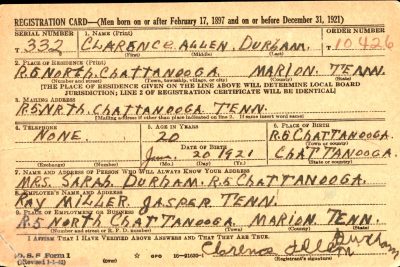 REGISTRATION CARD—(Men born on or after February 17, 1897 and on or before December 31, 1921)
SERIAL NUMBER 1. NAME (Print) ORDER NUMBER
T 332 CLARENCE ALLEN DURHAM T 10,426
(First) (Middle) (Last)
2. PLACE OF RESIDENCE (Print)
R.5 NORTH CHATTANOOGA MARION TENN.
(Number and street) (Town, township, village, or city) (County) (State)
[THE PLACE OF RESIDENCE GIVEN ON THE LINE ABOVE WILL DETERMINE LOCAL BOARD
JURISDICTION; LINE 2 OF REGISTRATION CERTIFICATE WILL BE IDENTICAL]
3. MAILING ADDRESS
R.5 NRTH. CHATTANOOGA TENN.
[Mailing address if other than place indicated on line 2. If same insert word same]
4. TELEPHONE 5. AGE IN YEARS 6. PLACE OF BIRTH
NONE. 20 R.5 CHATTANOOGA.
DATE OF BIRTH (Town or county)
20 1921 CHATTANOOGA.
(Exchange) (Number) (Mo.) (Day) (Yr.) (State or country)
7. NAME AND ADDRESS OF PERSON WHO WILL ALWAYS KNOW YOUR ADDRESS
MRS. SARAH DURHAM. R.5 CHATTANOOGA.
8. EMPLOYER'S NAME AND ADDRESS
RAY MILLER. JASPER TENN.
9. PLACE OF EMPLOYMENT OR BUSINESS
R5 NORTH CHATTANOOGA MARION TENN.
(Number and street or R. F. D. number) (Town) (County) (State)
I AFFIRM THAT I HAVE VERIFIED ABOVE ANSWERS AND THAT THEY ARE TRUE.
D. S. S. Form 1 GPO 16—21630-1 Clarence Allen Durham
(Registrant's signature)